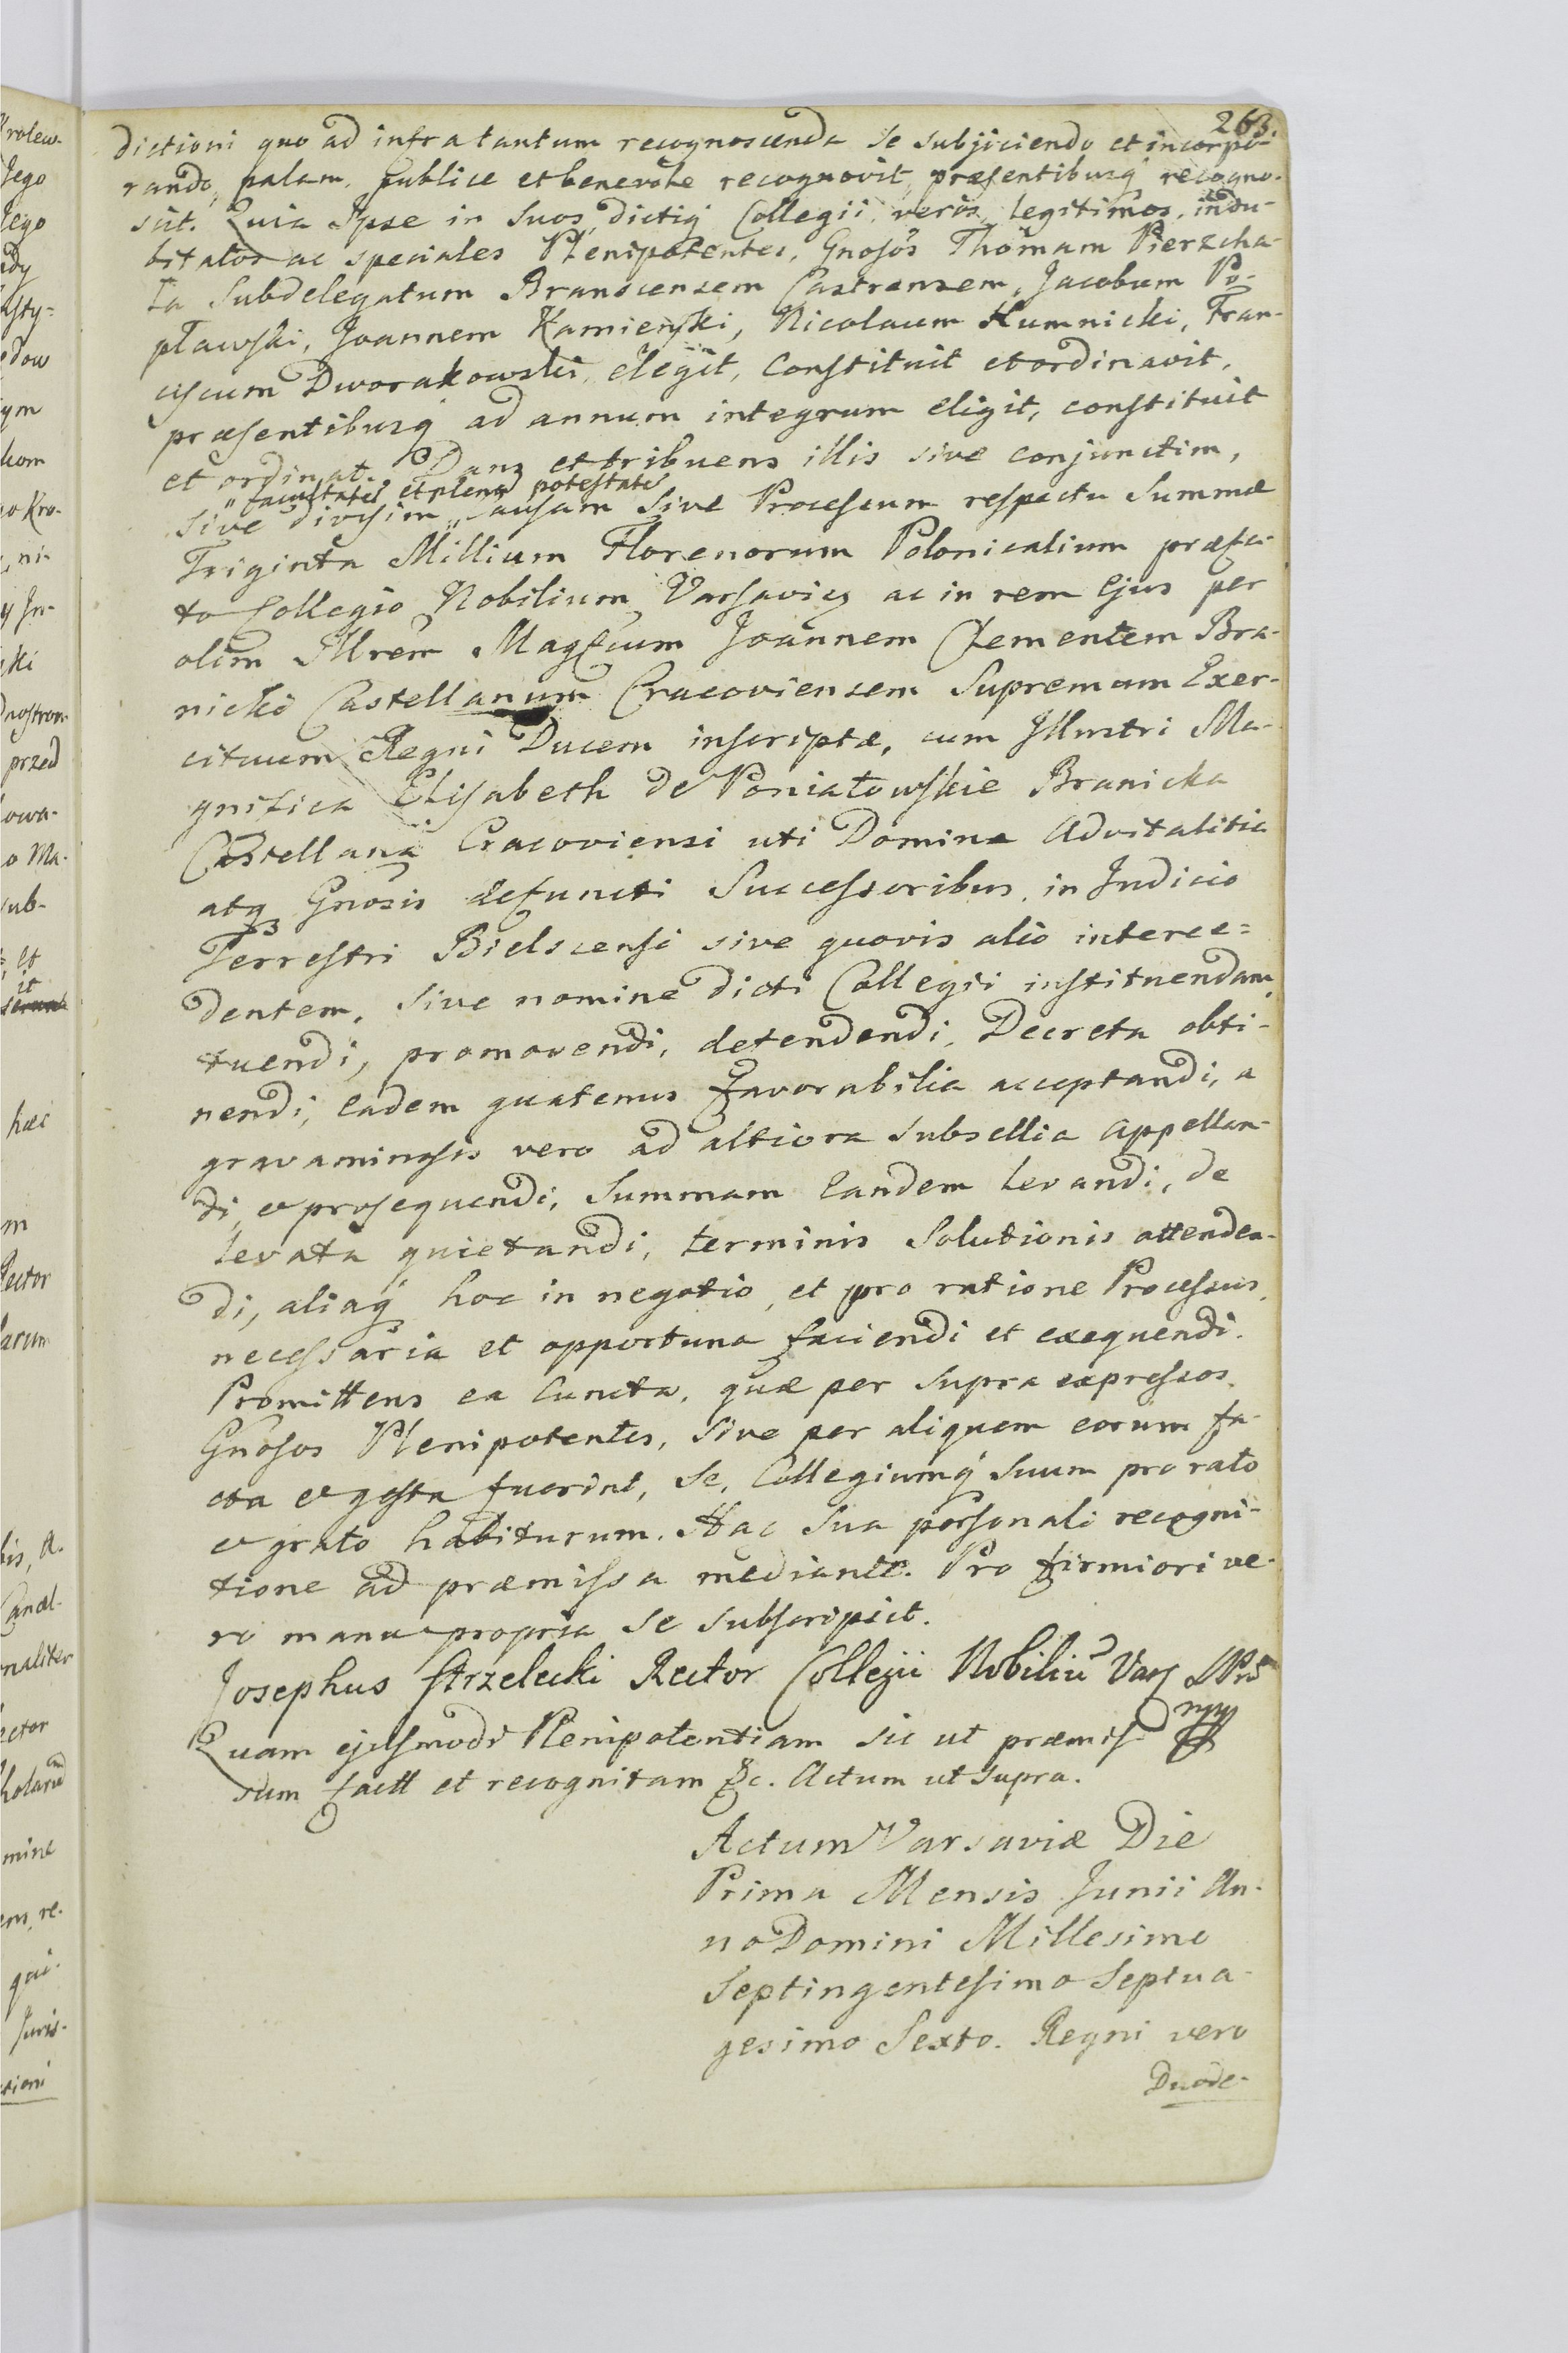 263.
dictioni quo ad infra tantum recognoscenda se subjiciendo et incorpo-
rando, palam, publice et benevole recognovit, præsentibusq recogno-
scit. Quia Ipse in Suos, dictiq Collegii, veros, legitimos, indu-
bitatos ac speciales Plenipotentes, Gnosos Thomam Pierzcha-
ła Subdelegatum Branscensem Castrensem, Jacobum Po-
pławski, Joannem Kamieński, Nicolaum Humnicki, Fran-
ciscum Dworakowski, elegit, Constituit et ordinavit,
præsentibusq ad annum integrum eligit, constituit
et ordinat. Dans et tribuens illis sive conjunctim,
" facultate et plena potestate
sive divisim " causam sive Processum respectu Summæ
Triginta Millium Florenorum Polonicalium præfa-
to Collegio Nobilium Varsavien ac in rem Ejus per
olim Illrem Magficum Joannem Clementem Bra-
nicki Castellanum Cracoviensem Supremum Exer-
cituum Regni Ducem inscriptæ, cum Illustri Ma-
gnifica Elisabeth de Poniatowskie Branicka
Castellana Cracoviensi uti Domina Advitalitia
atq Gnosis defuncti Successoribus, in Judicio
Terrestri Bielscensi sive quovis alio interce=
dentem, sive nomine dicti Collegii instituendam,
tuendi, promovendi, defendendi, Decreta obti-
nendi, eadem quatenus favorabilia acceptandi, a
gravaminosis vero ad altiora Subsellia appellan-
di, et prosequendi, Summam Eandem levandi, de
levata quietandi, terminis Solutionis attenden-
di, aliaq hoc in negotio, et pro ratione Processus,
necessaria et opportuna faciendi et exequendi.
Promittens ea Cuncta, quæ per Supra expressos
Gnosos Plenipotentes, Sive per aliquem eorum fa-
cta et gesta fuerint, Se, Collegiumq Suum pro rato
et grato habiturum. Hac Sua personali recogni-
tione ad præmissa mediante. Pro firmiori ve-
ro manu propria Se Subscripsit.
Josephus Strzelecki Rector Collegii Nobiliu Vars
Quam ejusmodi Plenipotentiam sic ut præmis-
sum factt et recognitam &c. Actum ut Supra.
Actum Varsaviæ Die
Prima Mensis Junii An-
no Domini Millesimo
Septingentesimo Septua-
gesimo Sexto. Regni vero
Duode-